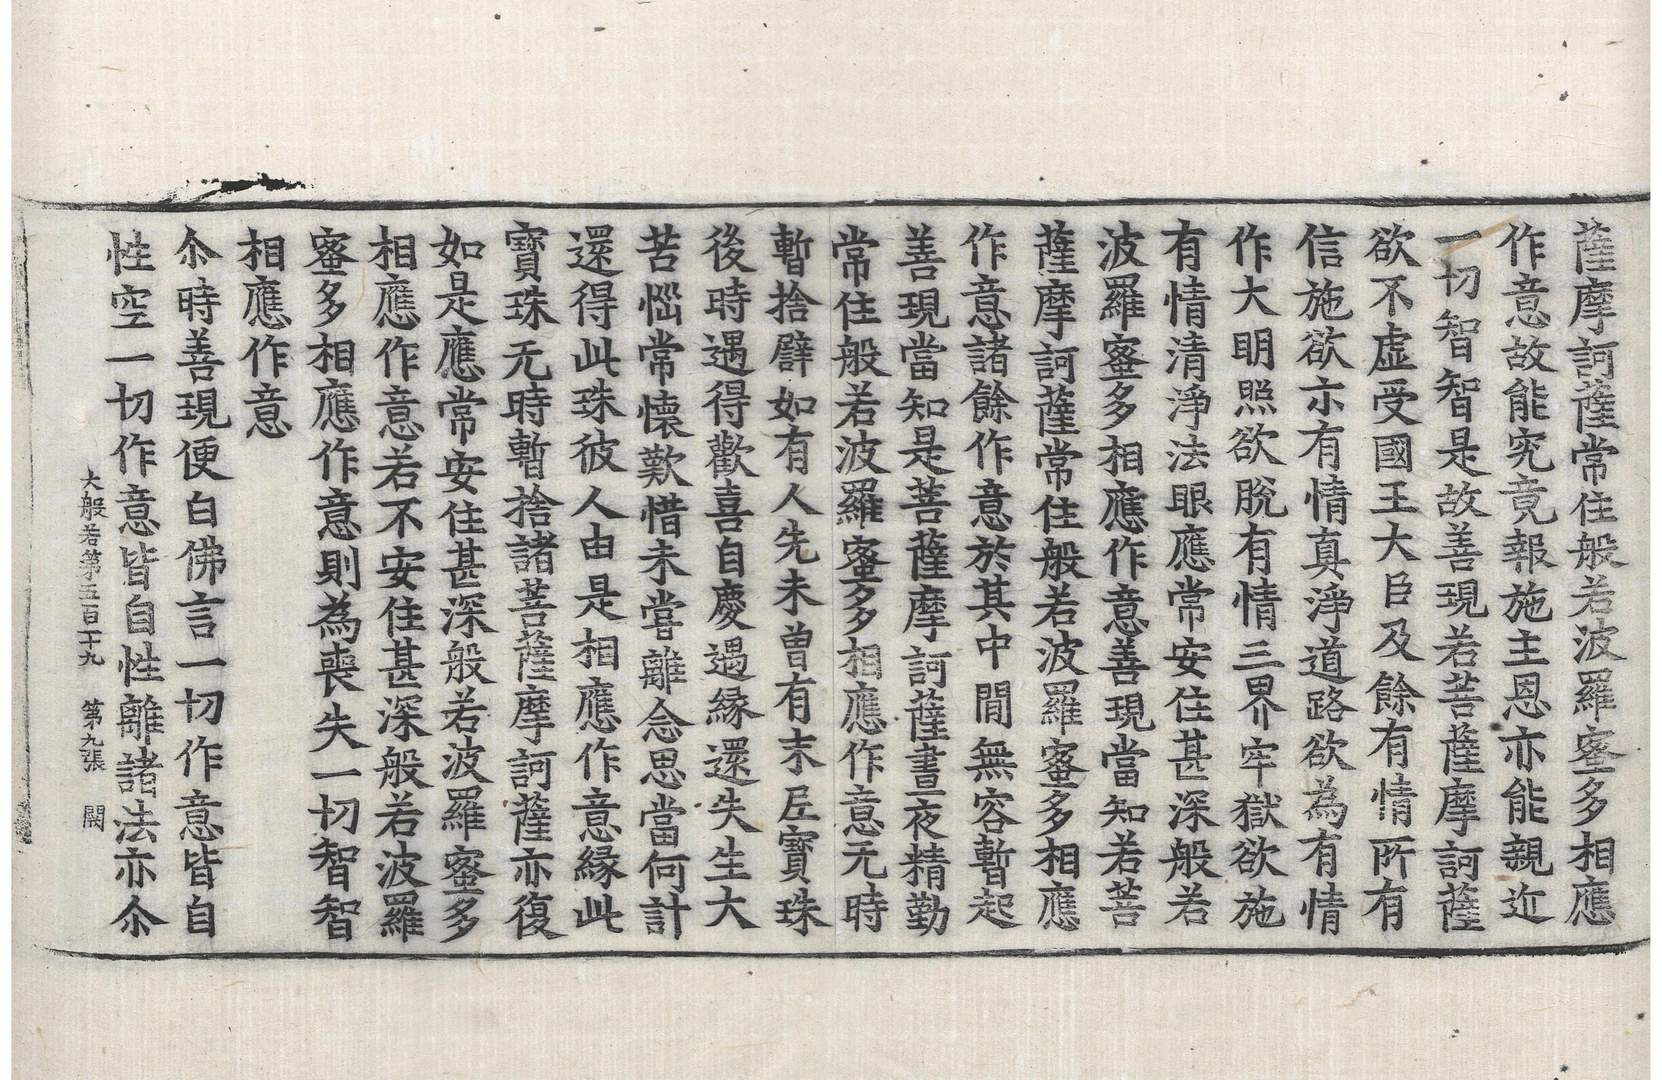 薩摩訶薩常住般若波羅蜜多相應
作意故能究竟報施主恩亦能親近
一切智智是故善現若菩薩摩訶薩
欲不虛受國王大臣及餘有情所有
信施欲示有情真淨道路欲為有情
作大明照欲脫有情三界牢獄欲施
有情清淨法眼應常安住甚深般若
波羅蜜多相應作意善現當知若菩
薩摩訶薩常住般若波羅蜜多相應
作意諸餘作意於其中間無容暫起
善現當知是菩薩摩訶薩晝夜精勤
常住般若波羅蜜多相應作意无時
暫捨譬如有人先未曾有末尼寶珠
後時遇得歡喜自慶遇緣還失生大
苦惱常懷歎惜未嘗離念思當何計
還得此珠彼人由是相應作意緣此
寶珠无時暫捨諸菩薩摩訶薩亦復
如是應常安住甚深般若波羅蜜多
相應作意若不安住甚深般若波羅
蜜多相應作意則為喪失一切智智
相應作意
尒時善現便白佛言一切作意皆自
性空一切作意皆自性離諸法亦尒
大般若第五百二十九 第九張 闕